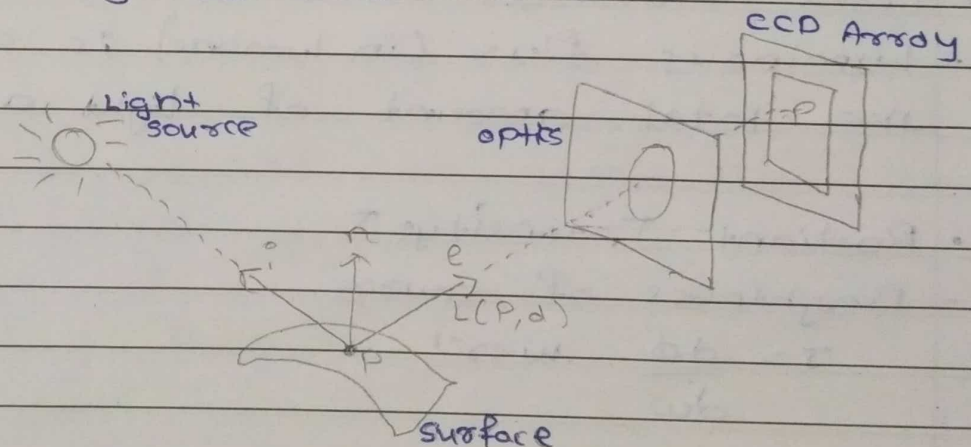 CCD Array
Light
source
optics
P
i
n
e
L(P,d)
P
surface